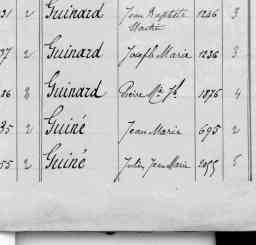 31 2 Guinard Jean Baptiste 1226 3
Marie
37 2 Guinard Joseph Marie 1236 3
36 8 Guinard Pierre Mie Jh 1876 4
35 2 Guiné Jean Marie 695 2
55 2 Guiné Julien Jean Marie 2055 5